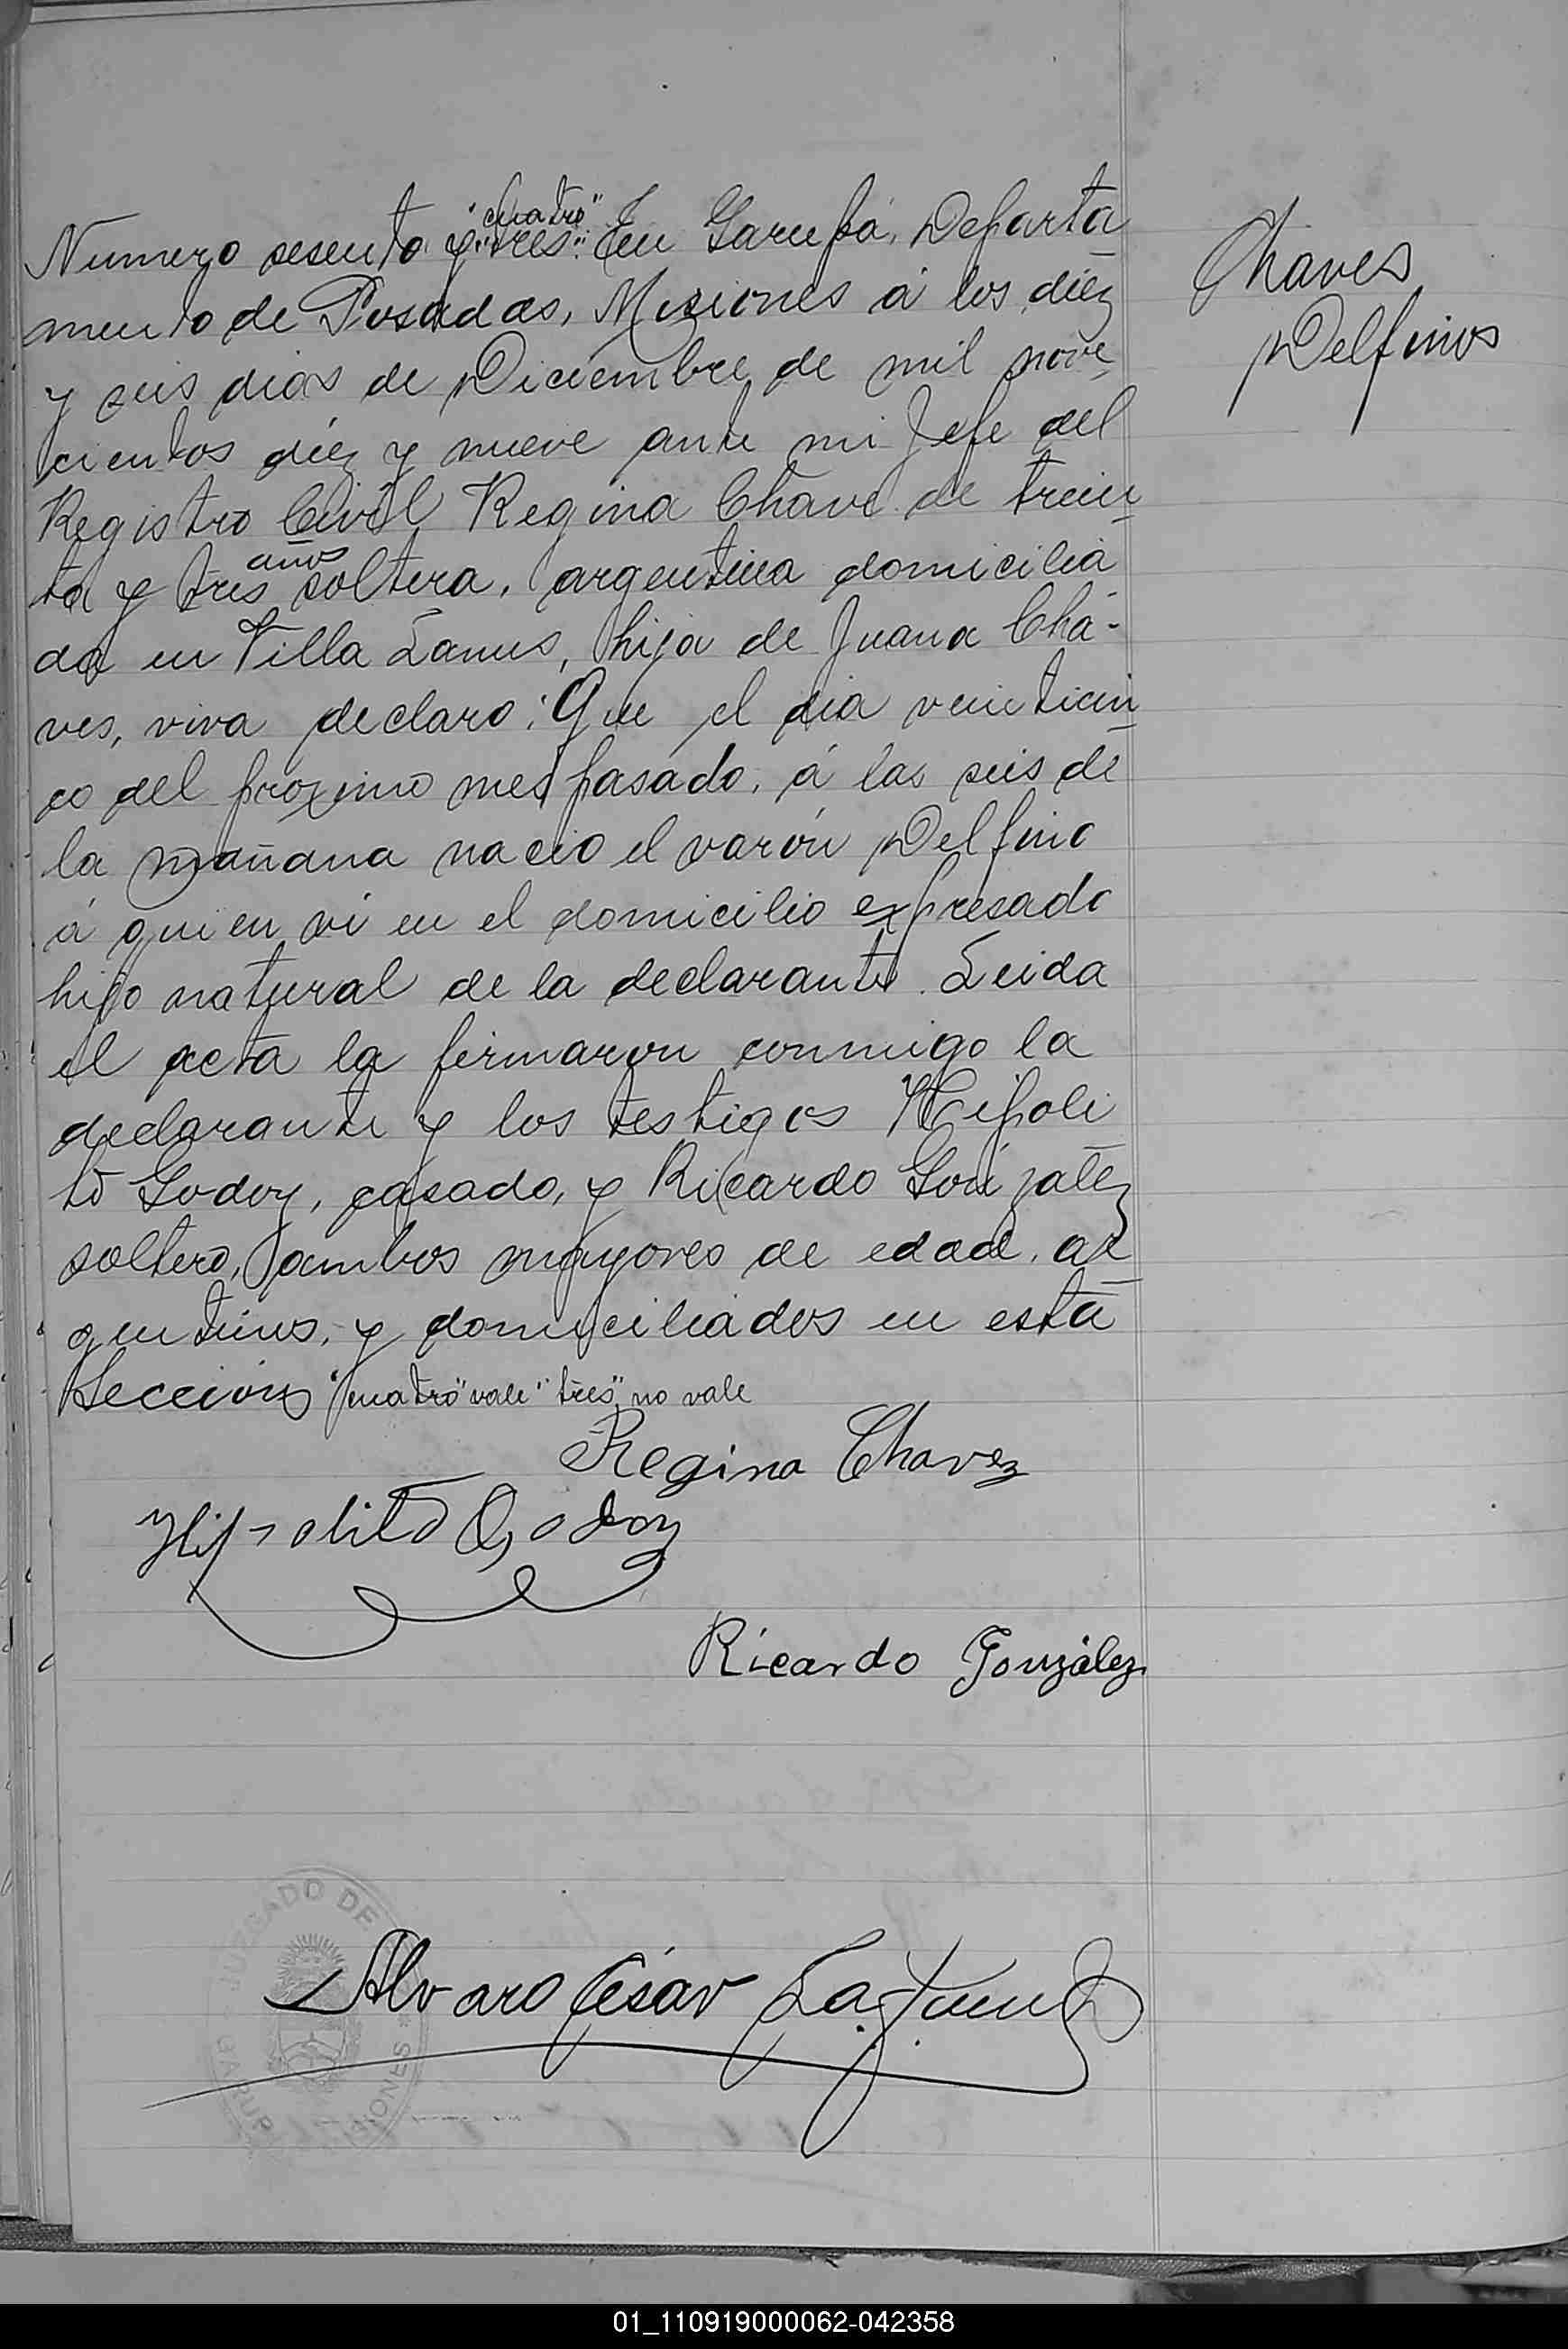 "cuatro"
Numero sesenta y "tres". En Garupá, Departa
mento de Posadas, Misiones á los diez
y seis dias de Diciembre de mil nove
cientos diez y nueve ante mi Jefe del
Registro Civil Regina Chave de trein
años
ta y tres soltera, argentina domicilia
da en Villa Lanus, hija de Juana Chá-
ves, viva declaro: Que el dia veinticin
co del proximo mes pasado, á las seis de
la mañana nacio el varón Delfino
á quien vi en el domicilio expresado
hijo natural de la declarante. Leida
el acta la firmaron conmigo la
declarante y los testigos Hipoli
to Godoy, casado, y Ricardo González
soltero, ambos mayores de edad, ar
gentinos, y domiciliados en esta
Sección "cuatro" vale "tres" no vale
Chaves
Delfinos
Regina Chavez
Hipolito Godoy
Ricardo González
JUZGADO DE
GARUP
MISIONES *
Alvaro César
01_110919000062-042358